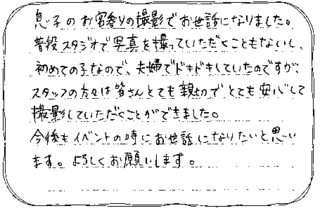 息子のお宮参りの撮影でお世話になりました。
普段スタジオで写真を撮っていただくこともないし、
初めての子なので、夫婦でドキドキしていたのですが、
スタッフの方々は皆さんとても親切でとても安心して
撮影していただくことができました。
今後もイベントの時にお世話になりたいと思い
ます。よろしくお願いします。